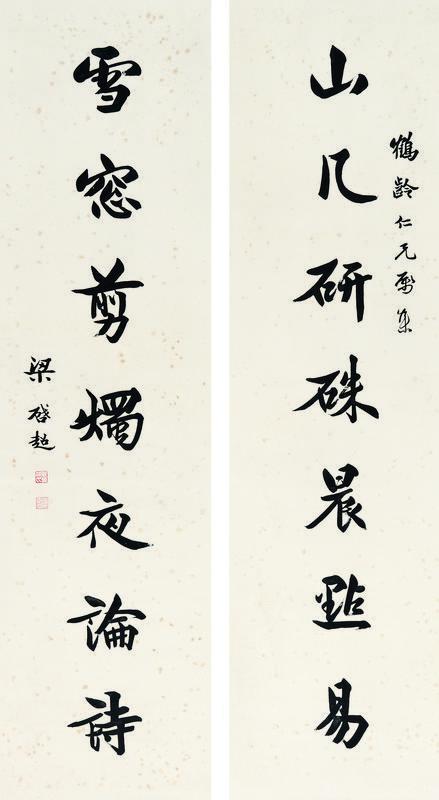 鶴齡仁兄屬集
山几研硃晨點易
雪窓剪燭夜論詩
梁啓超